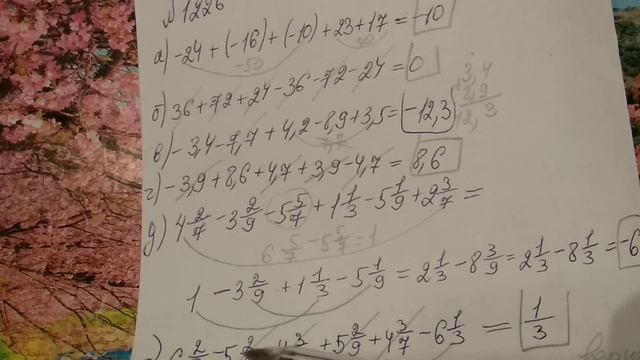 № 1226
а) -24 + (-16) + (-10) + 23 + 17 = -10
-50 40
б) 36 + 72 + 24 - 36 - 72 - 24 = 0
в) - 3,4 - 7,7 + 4,2 - 8,9 + 3,5 = -12,3
7,7
г) - 3,9 + 8,6 + 4,7 + 3,9 - 4,7 = 8,6
д) 4 2/7 - 3 2/9 - 5 5/7 + 1 1/3 - 5 1/9 + 2 3/7 =
6 5/7 - 5 5/7 = 1
1 - 3 2/9 + 1 1/3 - 5 1/9 = 2 1/3 - 8 3/9 = 2 1/3 - 8 1/3 = -6
+ 5 2/9 + 4 3/7 - 6 1/3 = 1/3